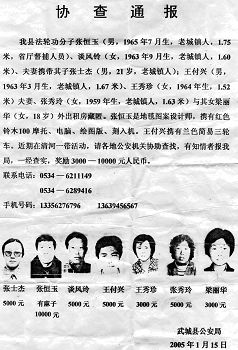 协 查 通 报
我县法轮功分子张恒玉（男，1965年7月生，老城镇人，1.75
米，省厅督捕人员）、谈风玲（女，1963年9月生，老城镇人，1.60
米）、夫妻携带其子张士杰（男，21岁，老城镇人）；王付兴（男，
1963年3月生，老城镇人，1.67米）、王秀珍（女，1964年生，1.52
米）夫妻、张秀玲（女，1959年生，老城镇人，1.63米）与其女梁丽
华（女，18岁）外出租房藏匿。张恒玉是地毯图案设计师，携有红色
铃木100摩托、电脑、绘图版、刻入机。王付兴携有兰色简易三轮
车。近期在清河一带活动，请各地公安机关协助查找，有知情者报我
局，一经查实，奖励3000－10000元人民币。
联系电话：0534－6211149
0534－6289416
手机号码：13356276796 13639456567
张士杰 张恒玉 谈风玲 王付兴 王秀珍 张秀玲 梁丽华
5000元 有麻子 5000元 5000元 5000元 5000元 3000元
10000元
武城县公安局
2005年1月15日